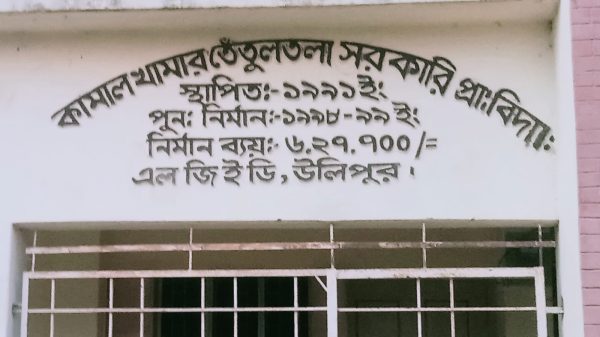 কামাল খামার তেঁতুলতলা সরকারি প্রাঃবিদ্যাঃ
স্থাপিতঃ-১৯৯১ইং
পুনঃ নির্মানঃ-১৯৯৮-৯৯ইং
নির্মান ব্যয়ঃ- ৬.২৭.৭০০/=
এল জি ই ডি, উলিপুর।